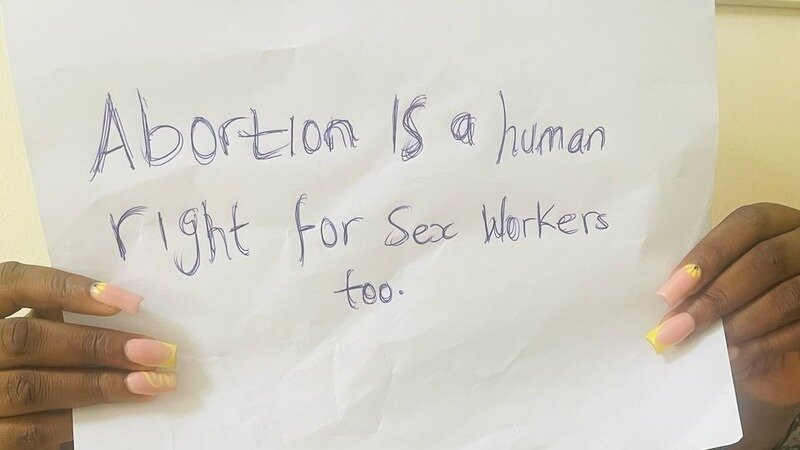 Abortion is a human
right for Sex Workers
too.